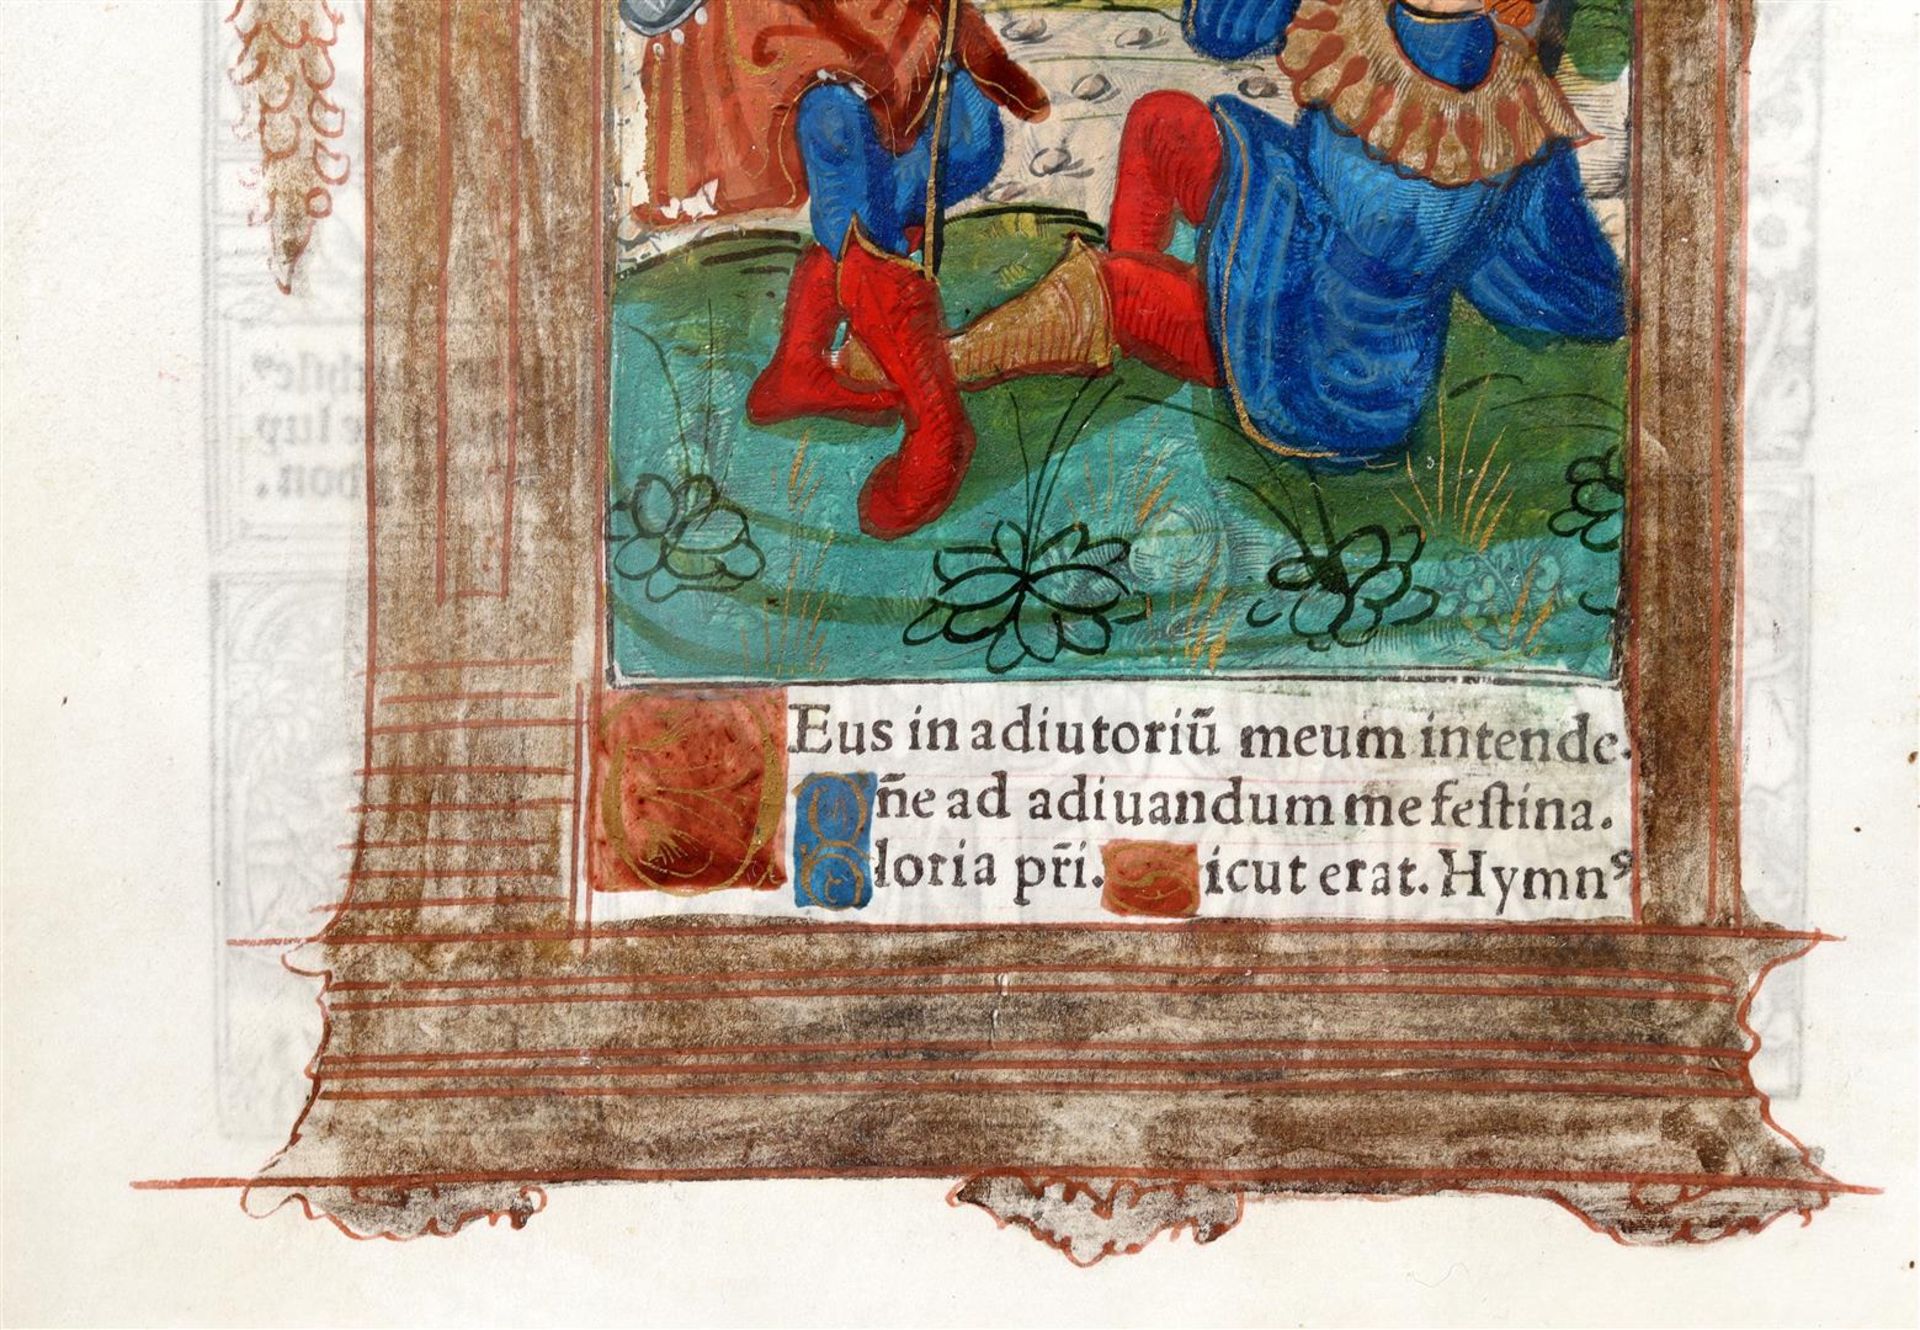 DEus in adiutoriũ meum intende.
Dñe ad adiuandum me feſtina.
Gloria pr̃i. Sicut erat. Hymnꝰ